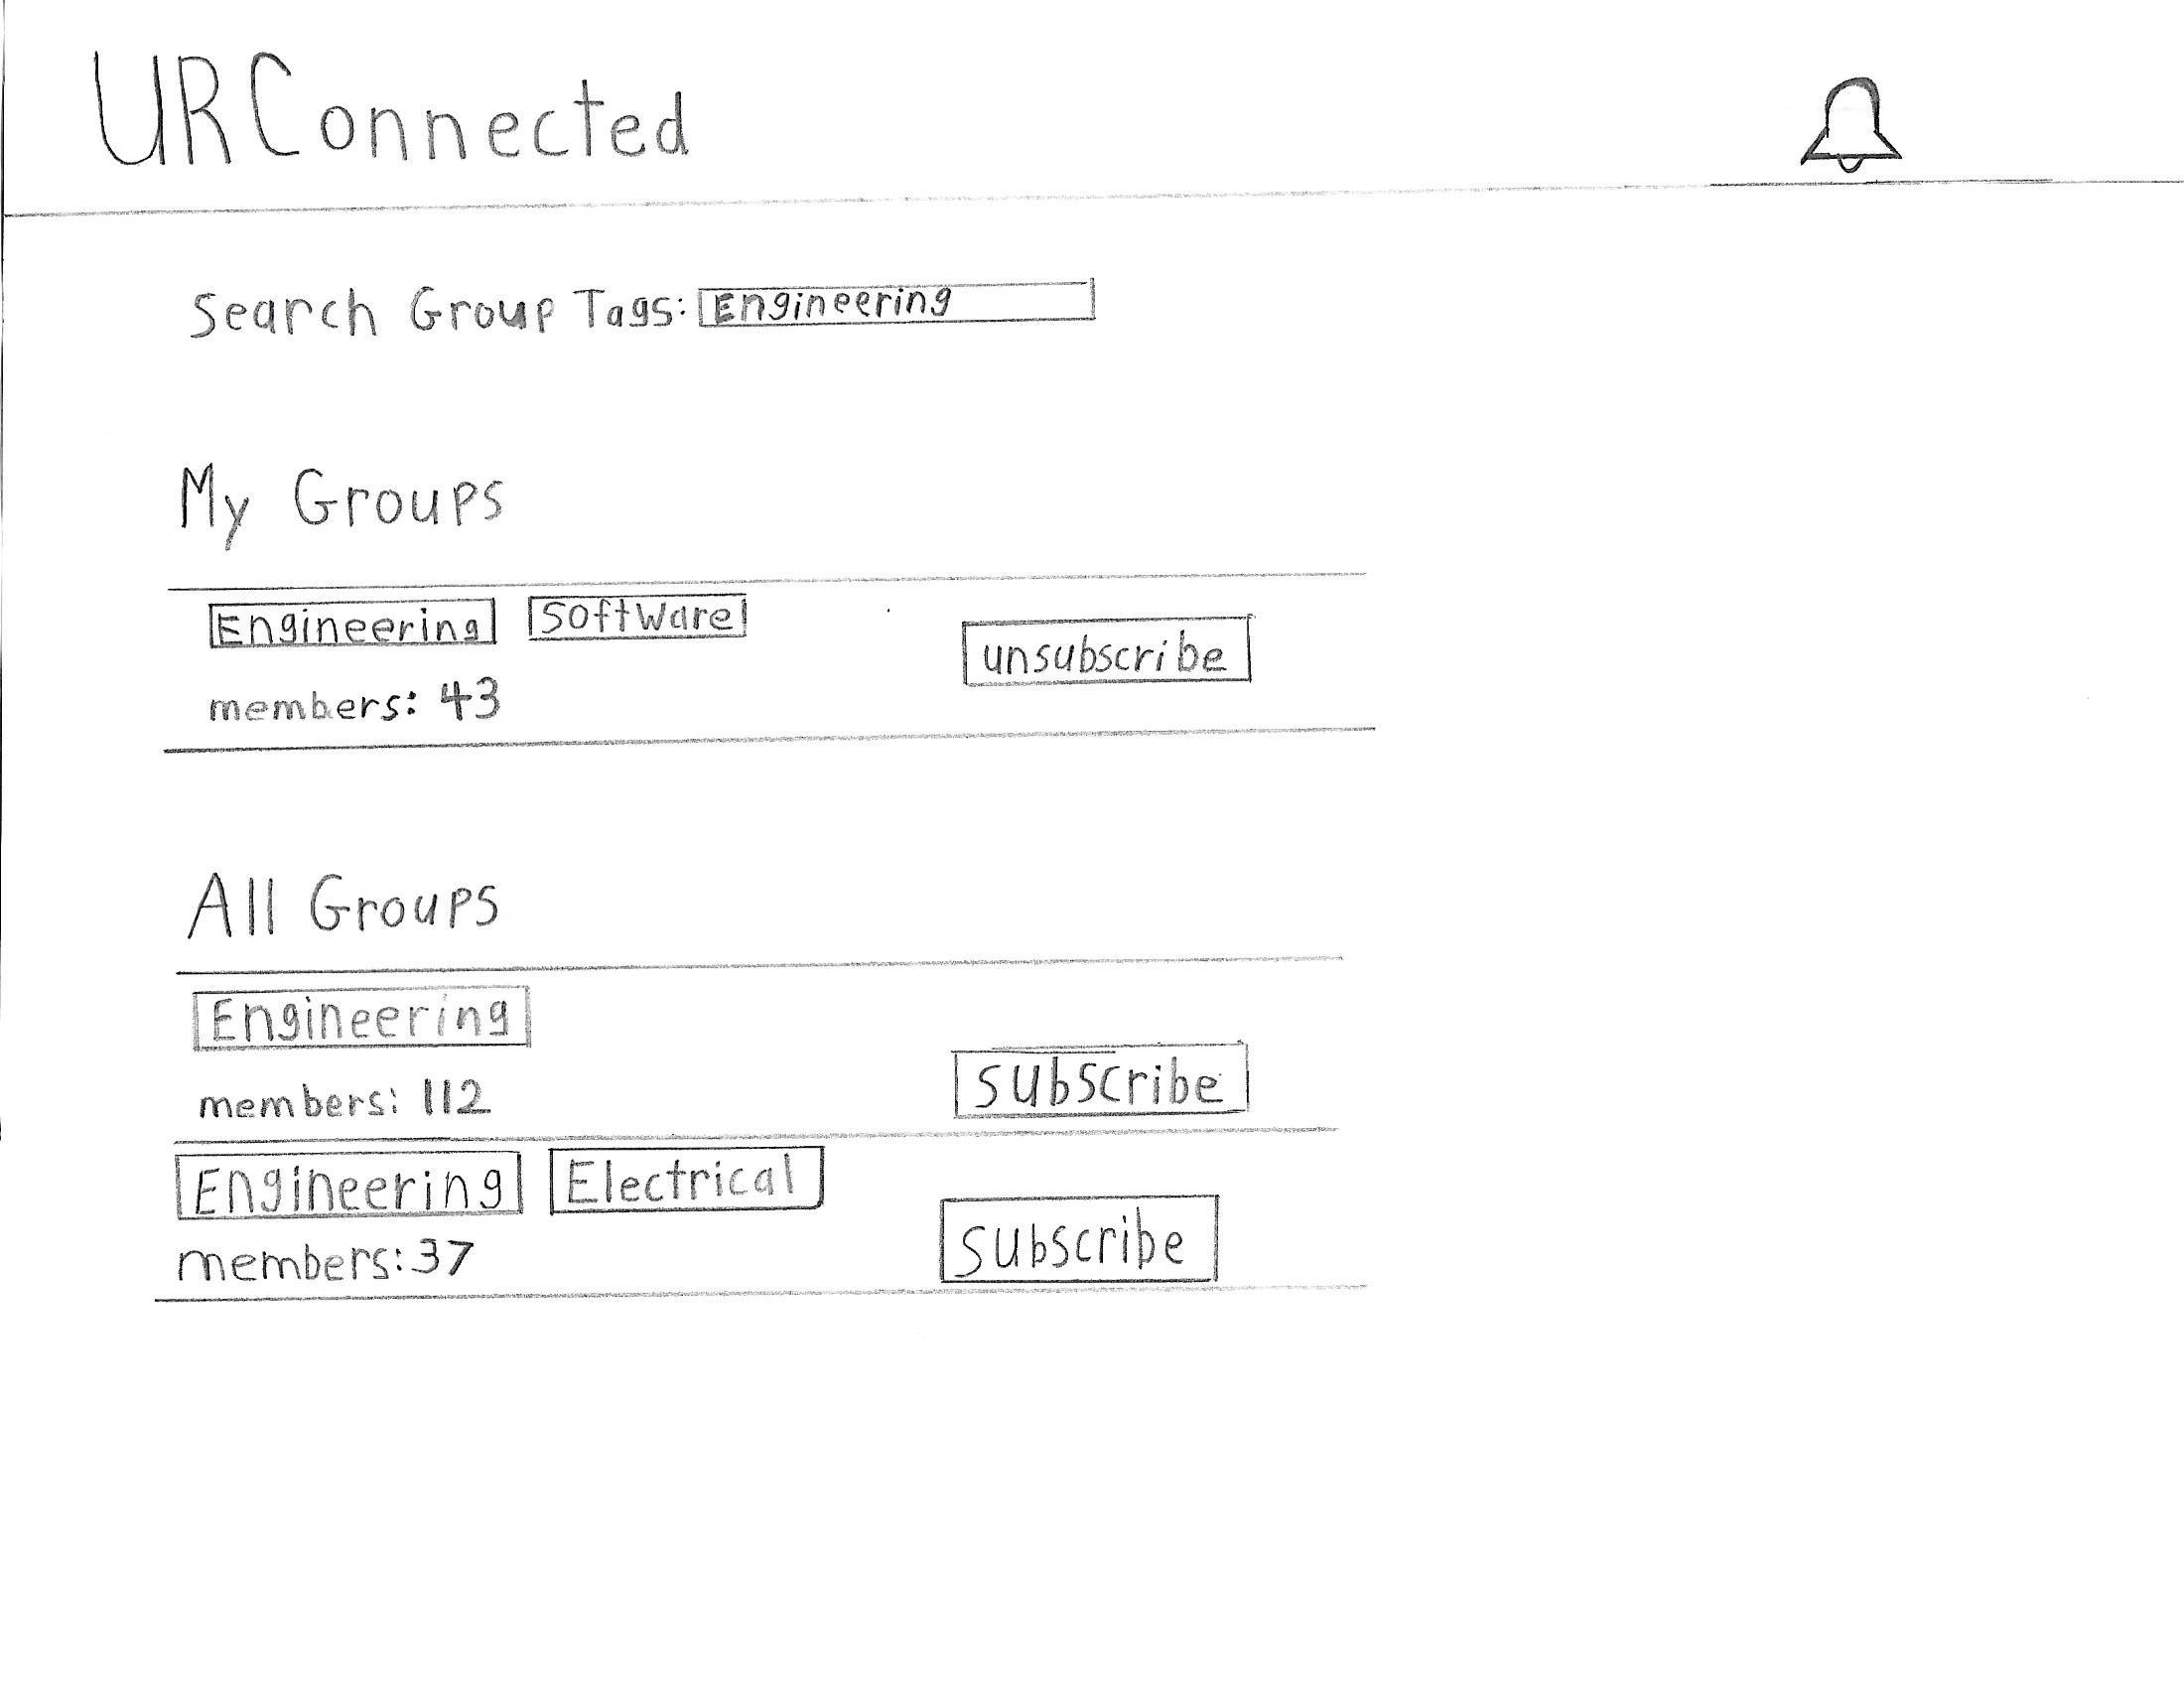 URConnected
Search Group Tags: Engineering
My Groups
Engineering Software
unsubscribe
members: 43
All Groups
Engineering
members: 112
subscribe
Engineering Electrical
members: 37
subscribe